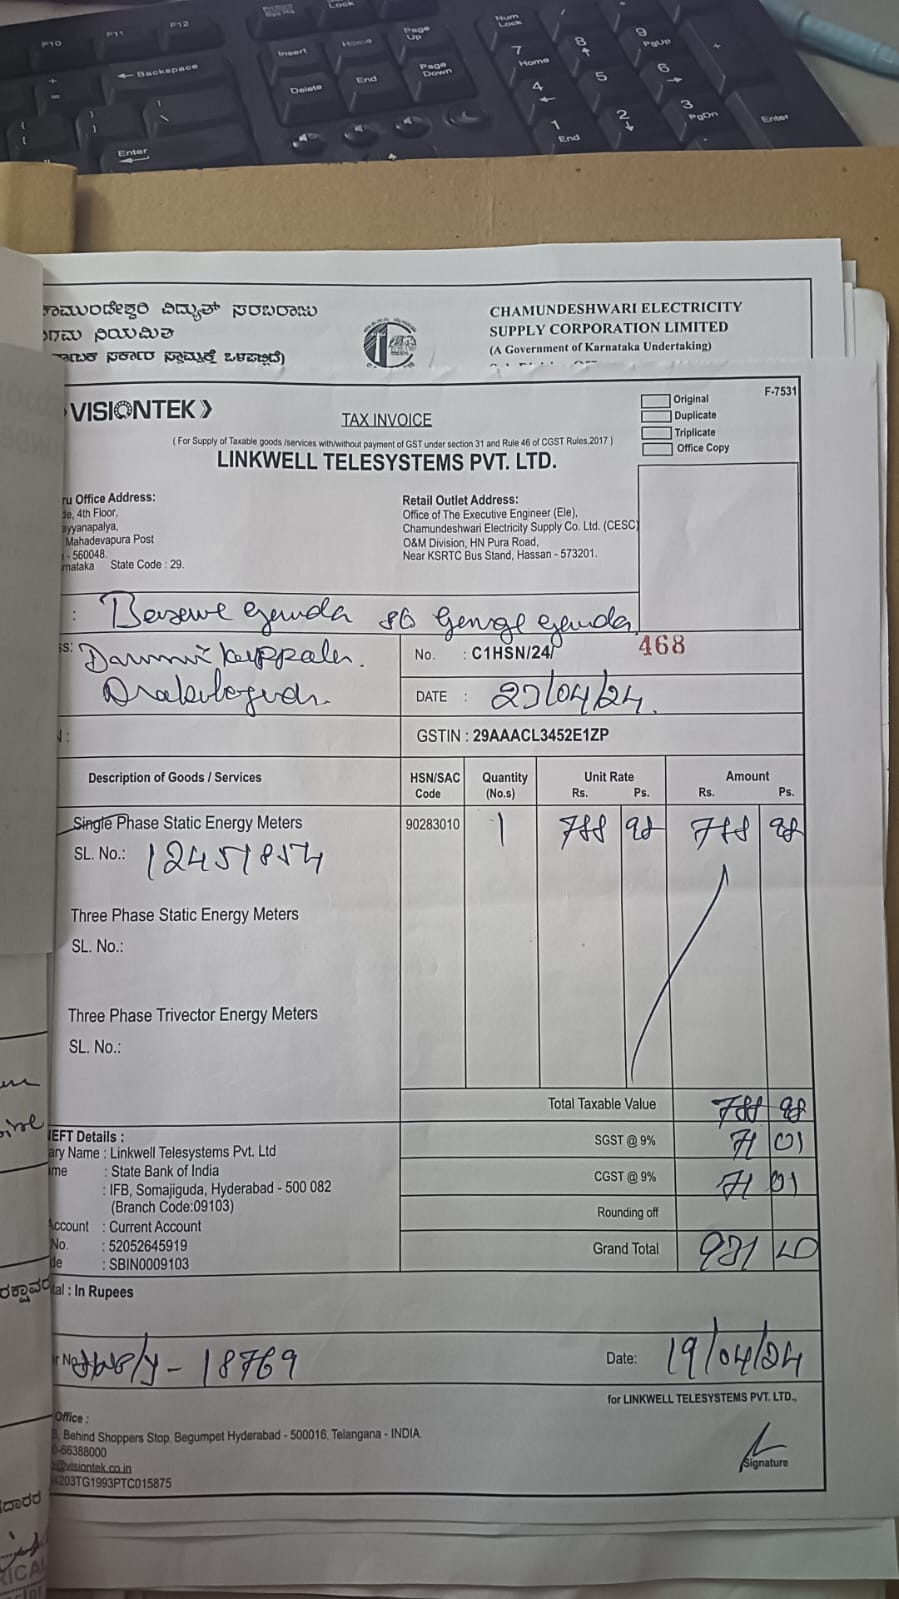 F10 F11 F12
Lock
Num
Lock
Insert Home Page
Up
Delete End Page
Down
Backspace
Enter
7
Home
8
9
PgUp
+
4
5
6
1
End
2
3
PgDn
Enter
ವಿದ್ಯುತ್ ಸರಬರಾಜು
ನಿಯಮಿತ
CHAMUNDESHWARI ELECTRICITY
SUPPLY CORPORATION LIMITED
(A Government of Karnataka Undertaking)
VISIONTEK
TAX INVOICE
Original
Duplicate
Triplicate
Office Copy
F-7531
( For Supply of Taxable goods /services with/without payment of GST under section 31 and Rule 46 of CGST Rules.2017 )
LINKWELL TELESYSTEMS PVT. LTD.
ru Office Address:
de, 4th Floor,
ayyanapalya,
Mahadevapura Post
- 560048.
rnataka State Code : 29.
Retail Outlet Address:
Office of The Executive Engineer (Ele),
Chamundeshwari Electricity Supply Co. Ltd. (CESC)
O&M Division, HN Pura Road,
Near KSRTC Bus Stand, Hassan - 573201.
ss:
No. : C1HSN/24/ 468
DATE : /04/24
GSTIN : 29AAACL3452E1ZP
Description of Goods / Services
HSN/SAC
Code
Quantity
(No.s)
Unit Rate
Rs. Ps.
Amount
Rs. Ps.
Single Phase Static Energy Meters 90283010 1 788 98 788 98
SL. No.: 12451854
Three Phase Static Energy Meters
SL. No.:
Three Phase Trivector Energy Meters
SL. No.:
Total Taxable Value 788 98
SGST @ 9% 71 01
CGST @ 9% 71 01
Rounding off
Grand Total 931 00
EFT Details :
ary Name : Linkwell Telesystems Pvt. Ltd
me : State Bank of India
: IFB, Somajiguda, Hyderabad - 500 082
(Branch Code:09103)
Account : Current Account
No. : 52052645919
de : SBIN0009103
tal : In Rupees
r No. - 18769
Date: 19/04/24
for LINKWELL TELESYSTEMS PVT. LTD.,
Office :
, Behind Shoppers Stop, Begumpet Hyderabad - 500016, Telangana - INDIA
-66388000
@visiontek.co.in
203TG1993PTC015875
Signature